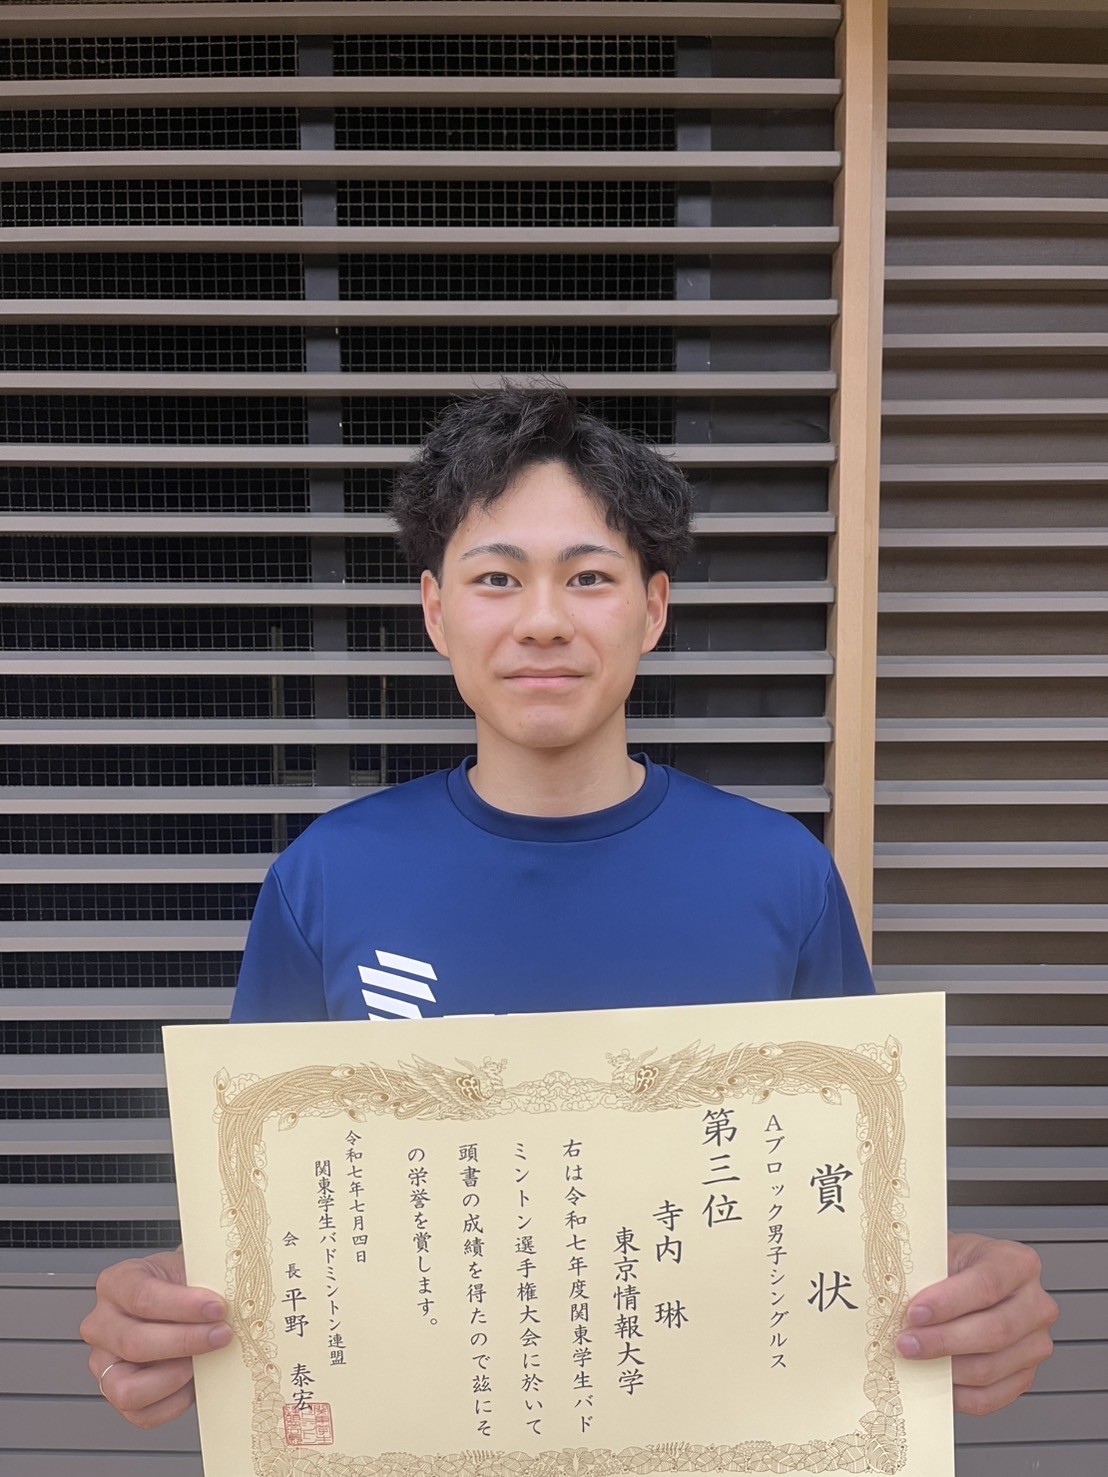 賞状
Aブロック男子シングルス
第三位
寺内 琳
東京情報大学
右は令和七年度関東学生バド
ミントン選手権大会に於いて
頭書の成績を得たので茲にそ
の栄誉を賞します。
令和七年七月四日
関東学生バドミントン連盟
会長 平野 泰宏